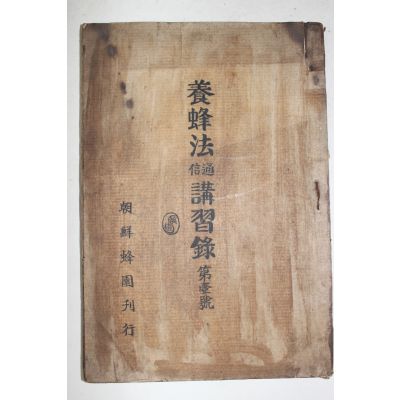 養蜂法通信講習錄 第壹號
朝鮮蜂園刊行